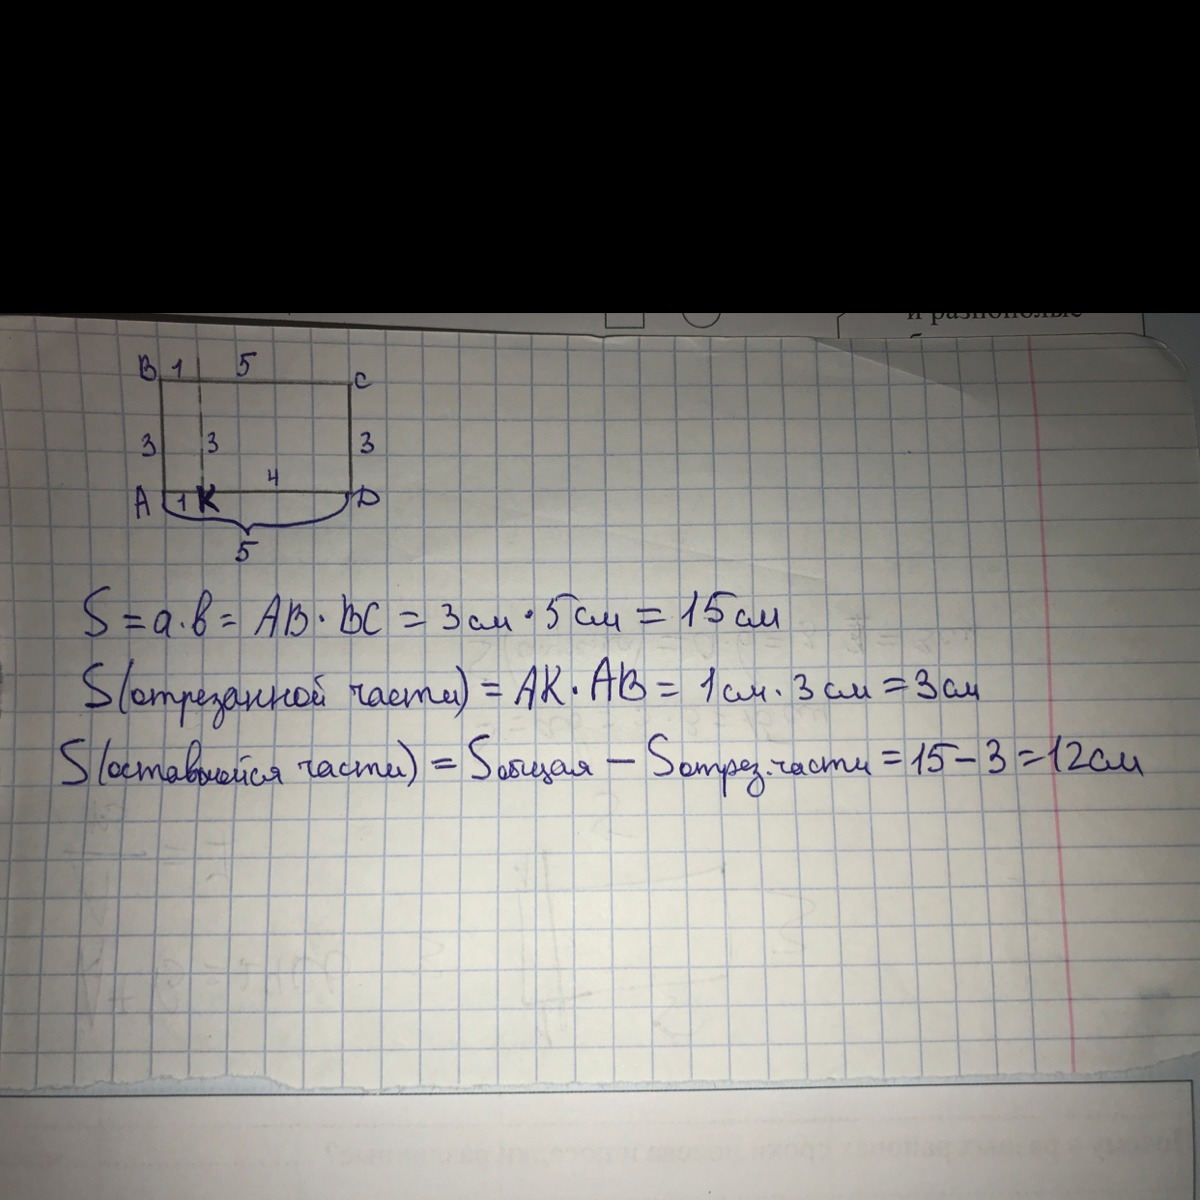 и разнополые
B 1 5 C
3 3 3
4
A 1 K D
5
S = a·b = AB · BC = 3 см · 5 см = 15 см
S(отрезанной части) = AK · AB = 1 см · 3 см = 3 см
S(оставшейся части) = Sобщая – Sотрез.части = 15 – 3 = 12 см